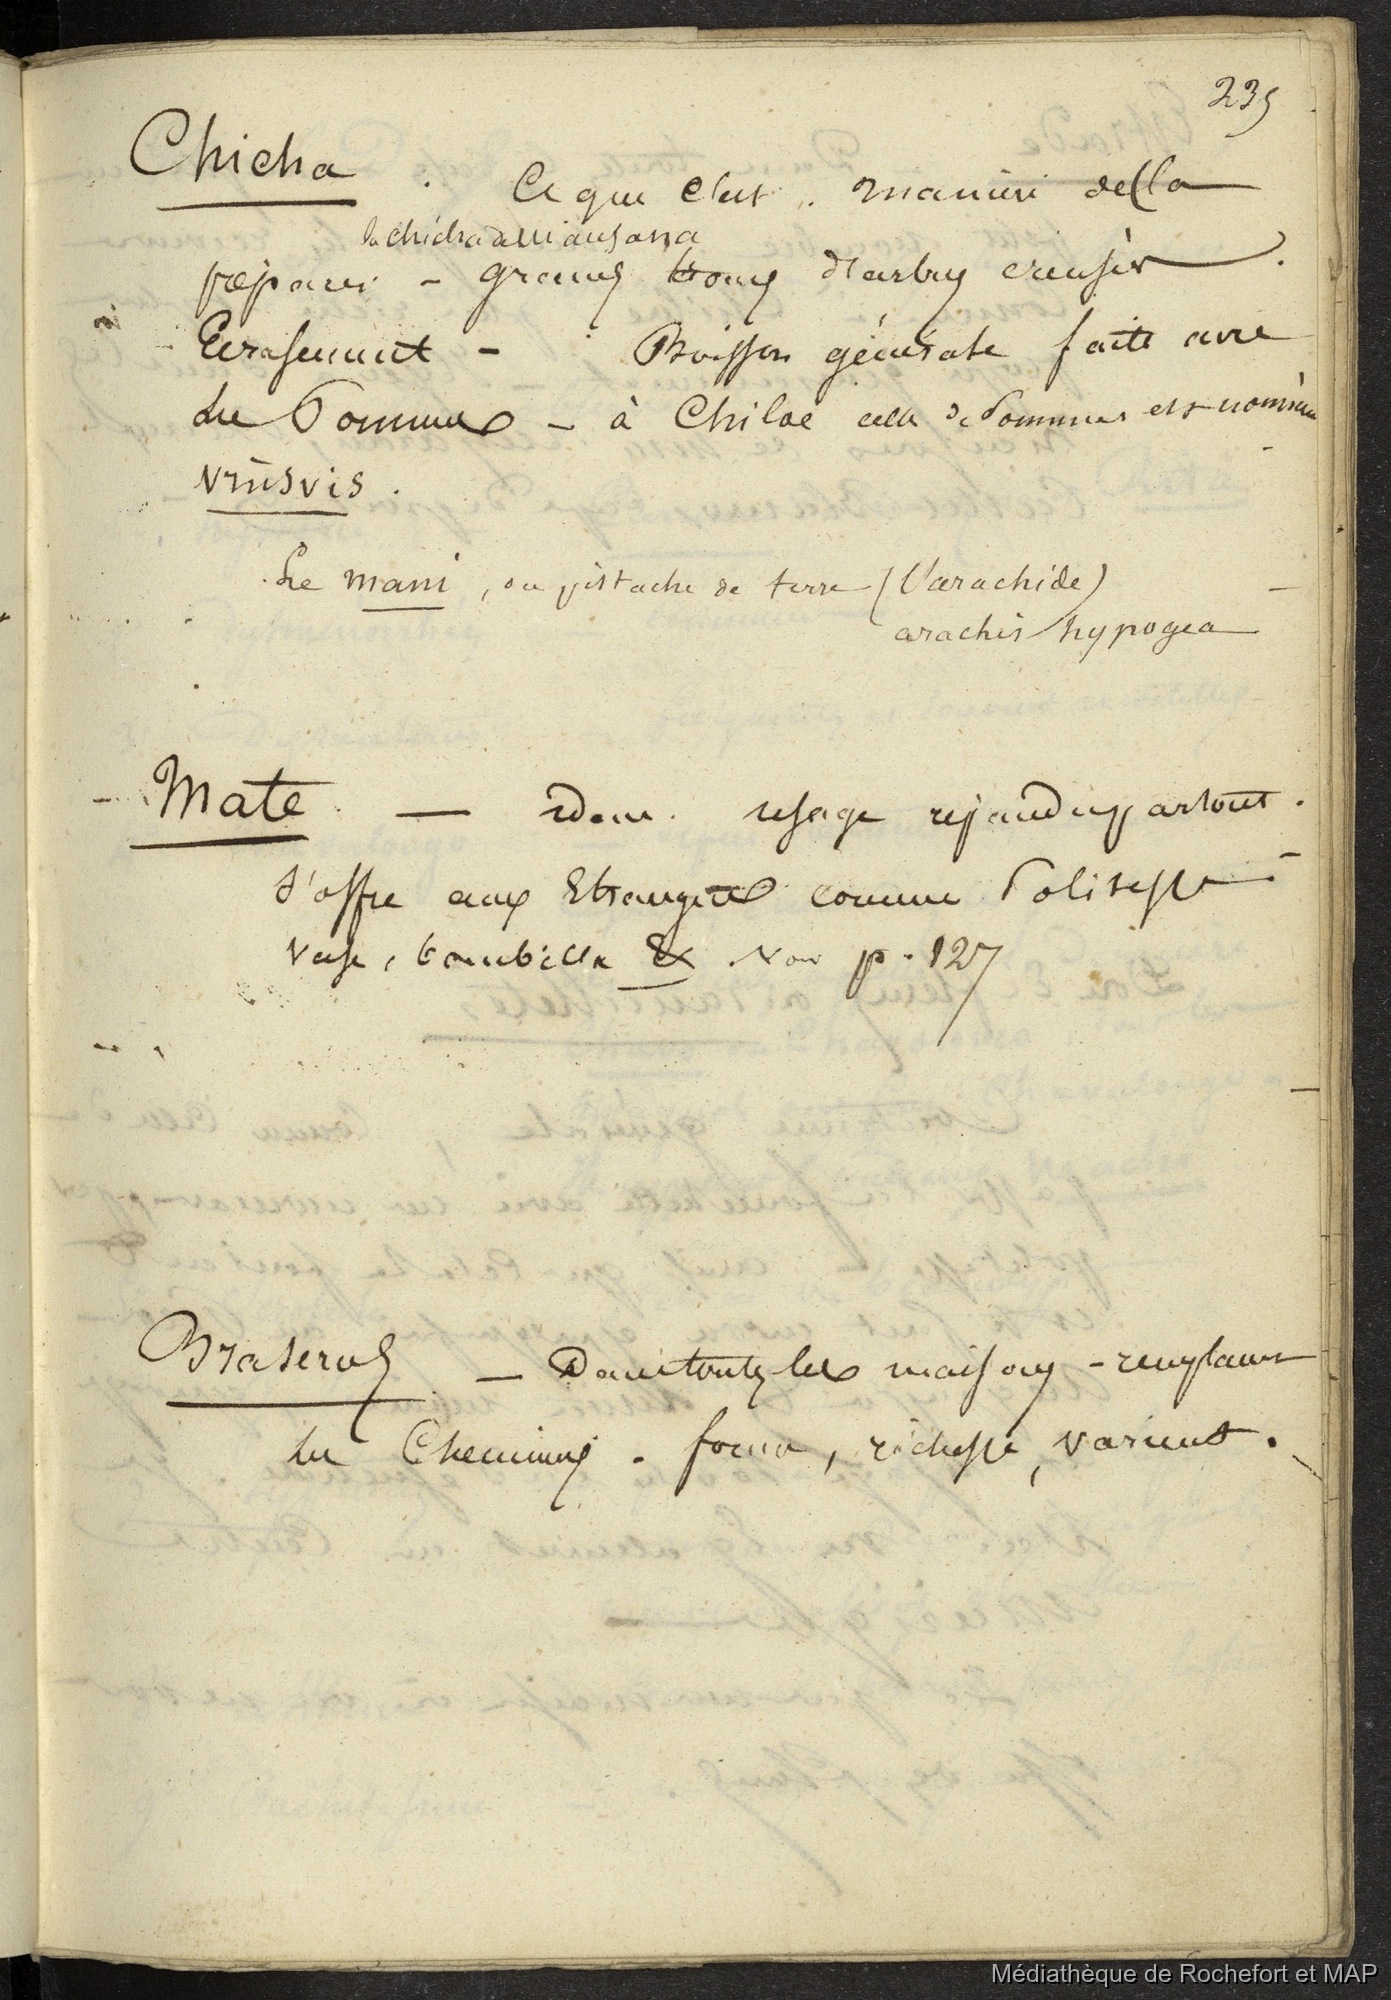 235
Chicha . Ce que c'est . manière de la
la chicha de Manzana
préparer - grands troncs d'arbres creusés .
Ecrasement - Boisson générale faite avec
des Pommes - à Chiloe celle de Pommes est nommée
vrusvis .
Le mani , ou pistache de terre (l'arachide)
arachis hypogea
Mate — Idem . usage répandu partout .
s'offre aux Etrangers comme Politesse -
Vase , bombilla & . Voir p . 127
Braseros — Dans toutes les maisons - remplacent
les Cheminées . forme , richesse , varient .
Médiathèque de Rochefort et MAP